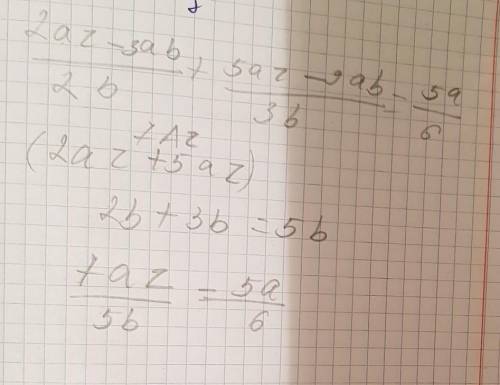 (2az - 3ab)/(2b) + (5az - 9ab)/(3b) = 5a/6
7Az
(2az + 5az)
2b + 3b = 5b
7az/5b = 5a/6